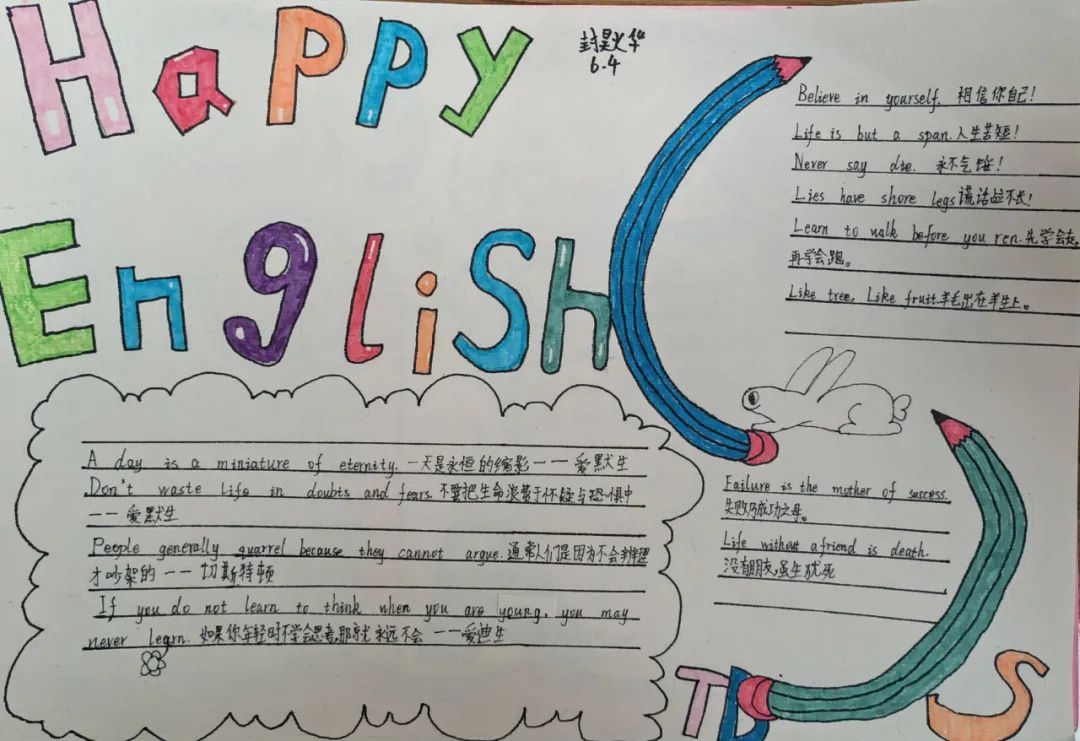 Happy
封昊华
6.4
English
Believe in yourself. 相信你自己!
Life is but a span.人生苦短!
Never say die. 永不气馁!
Lies have shore legs 谎话站不长!
Learn to walk before you ren.先学会走,
再学会跑。
Like tree, Like fruit.羊毛出在羊生上。
A day is a miniature of eternity. 一天是永恒的缩影——爱默生
Don't waste life in doubts and fears.不要把生命浪费于怀疑与恐惧中
——爱默生
People generally quarrel because they cannot argue.通常人们是因为不会辨理
才吵架的——切斯特顿
If you do not learn to think when you are young, you may
never learn. 如果你年轻时不学会思考,那就永远不会——爱迪生
Failure is the mother of success.
失败乃成功之母。
Life without a friend is death.
没有朋友,虽生犹死